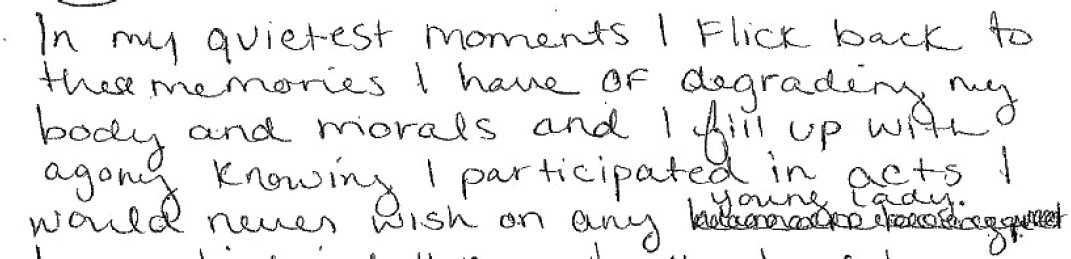 In my quietest moments I Flick back to
these memories I have OF degrading my
body and morals and I fill up with
agony knowing I participated in acts I
would never wish on any young lady.